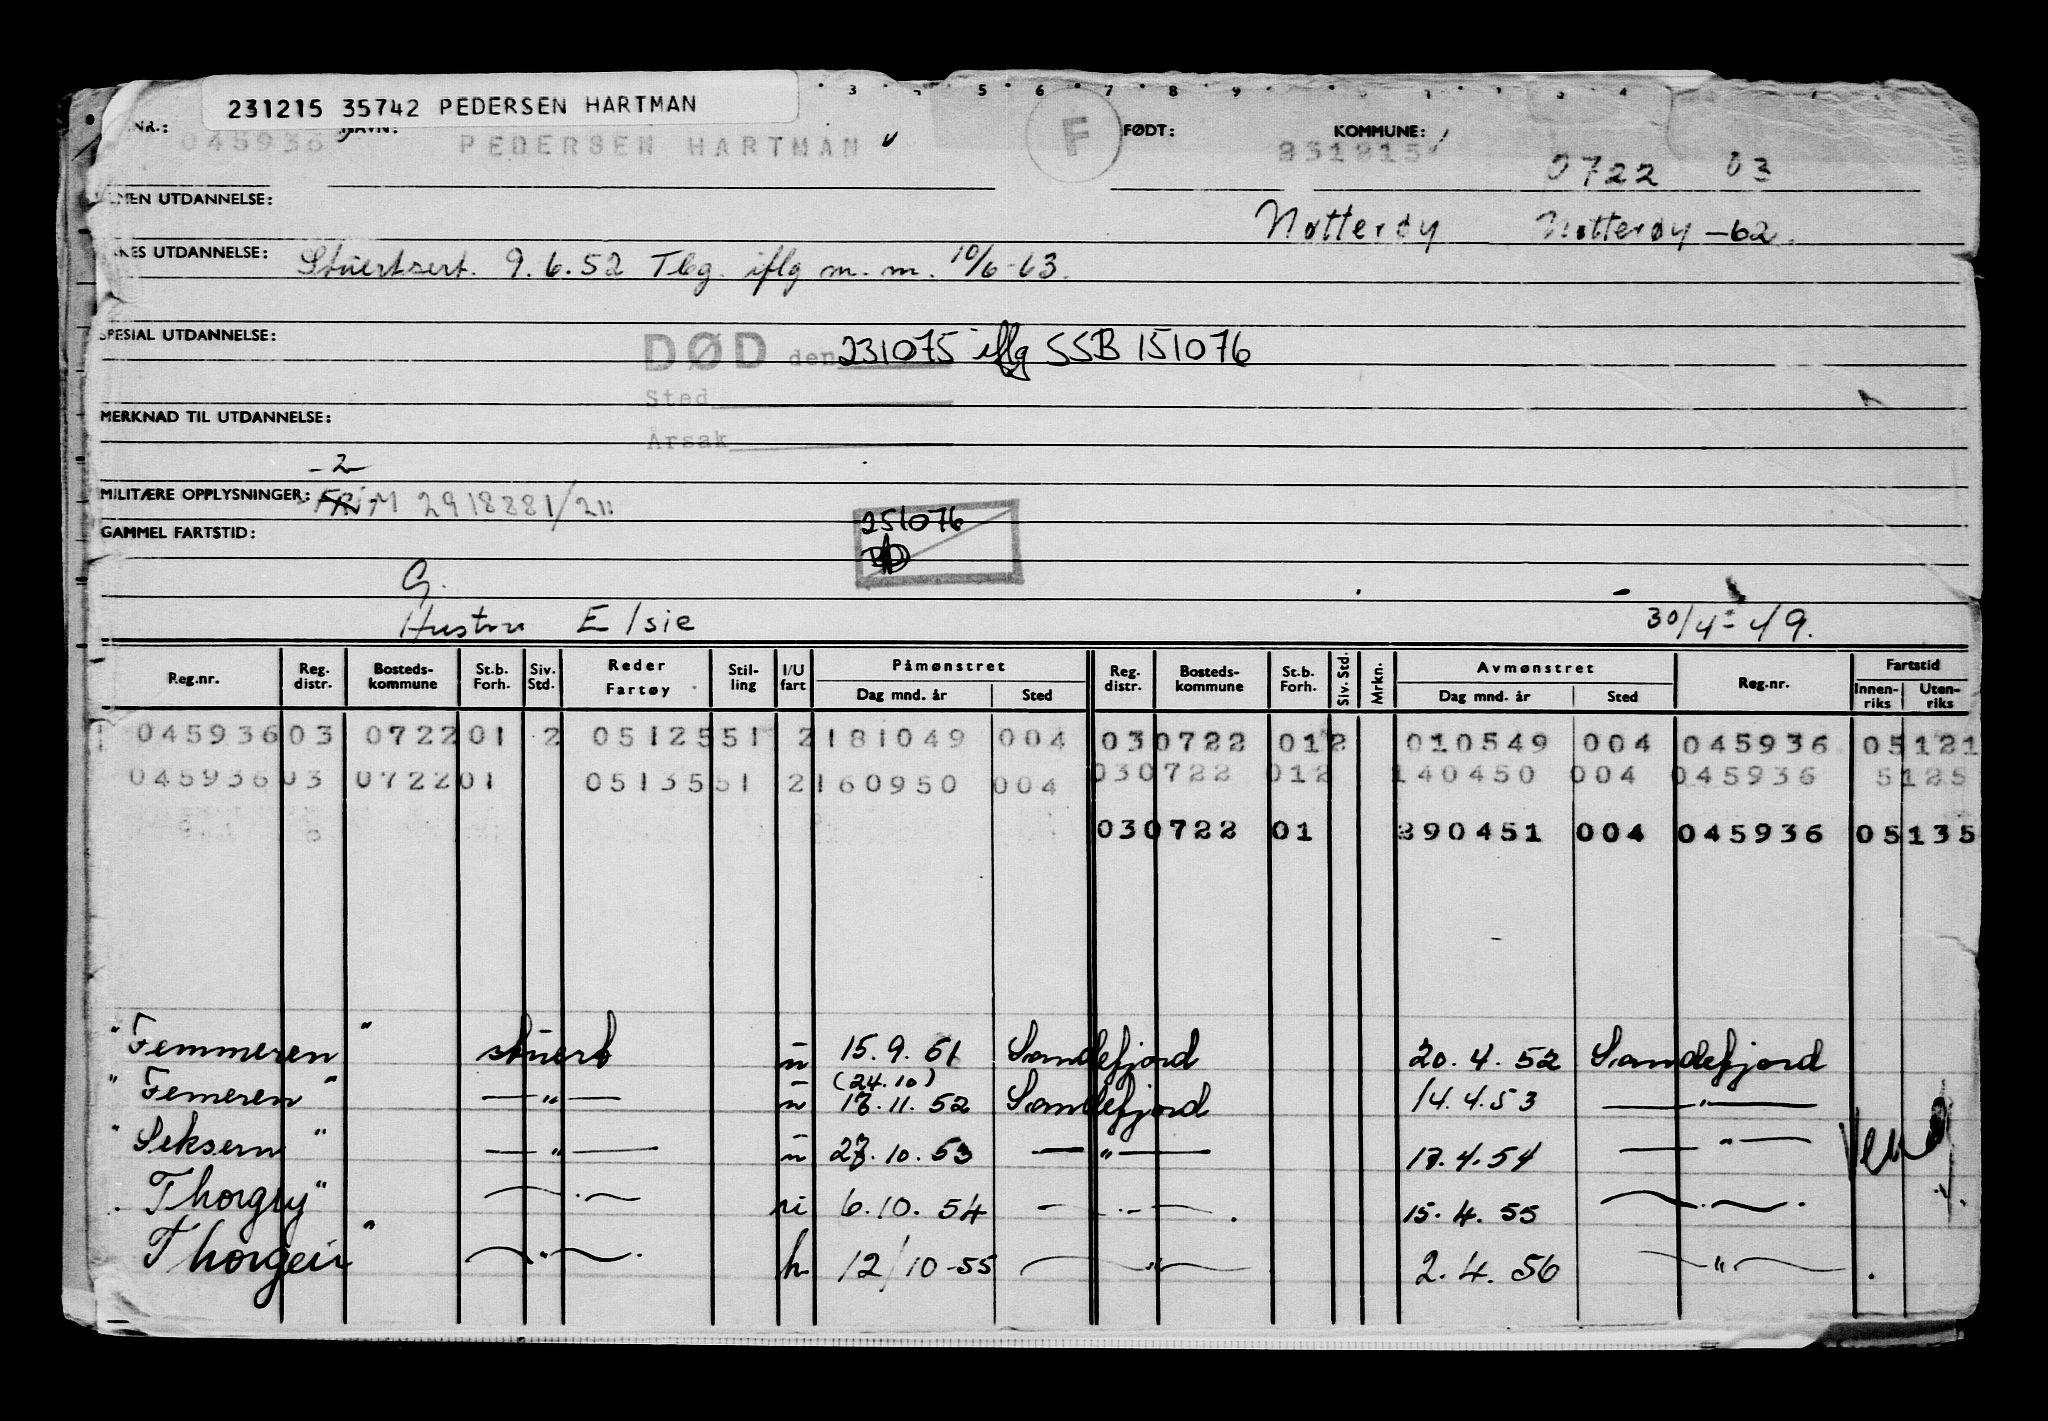 231215 35742 PEDERSEN HARTMAN
3 5 6 7 8 9
NR.: NAVN: FØDT: KOMMUNE:
045936 PEDERSEN HARTMAN F 231215 0722 03
UTDANNELSE: Nøtterøy Nøtterøy -62.
UTDANNELSE: Stuertsert. 9.6.52 Tbg. iflg m.m. 10/6-63.
SPESIAL UTDANNELSE: DØD den 231075 iflg SSB 151076
Sted
MERKNAD TIL UTDANNELSE:
Årsak
-2
MILITÆRE OPPLYSNINGER: M 2918881/211
251076
GAMMEL FARTSTID:
G.
Hustru Elsie 30/4-49.
Reg.nr. Reg. distr. Bosteds-kommune St.b. Forh. Siv. Std. Reder Fartøy Stil-ling I/U fart Påmønstret Dag mnd. år Sted Reg. distr. Bosteds-kommune St.b. Forh. Siv. Std. Mrkn. Avmønstret Dag mnd. år Sted Reg.nr. Fartstid Innen-riks Uten-riks
045936 03 0722 01 2 05125 51 2 181049 004 03 0722 01 2 010549 004 045936 05121
045936 03 0722 01 05135 51 2 160950 004 03 0722 01 2 140450 004 045936 5125
03 0722 01 290451 004 045936 05135
"Femmeren" stuert u 15.9.51 Sandefjord 20.4.52 Sandefjord
(24.10)
"Femeren" — " — u 18.11.52 Sandefjord 14.4.53 — " —
"Seksern" — " — u 27.10.53 — " — 17.4.54 — " —
"Thorgry" — " — u 6.10.54 — " — 15.4.55 — " —
Thorgeir" — " — h 12/10-55 — " — 2.4.56 — " —